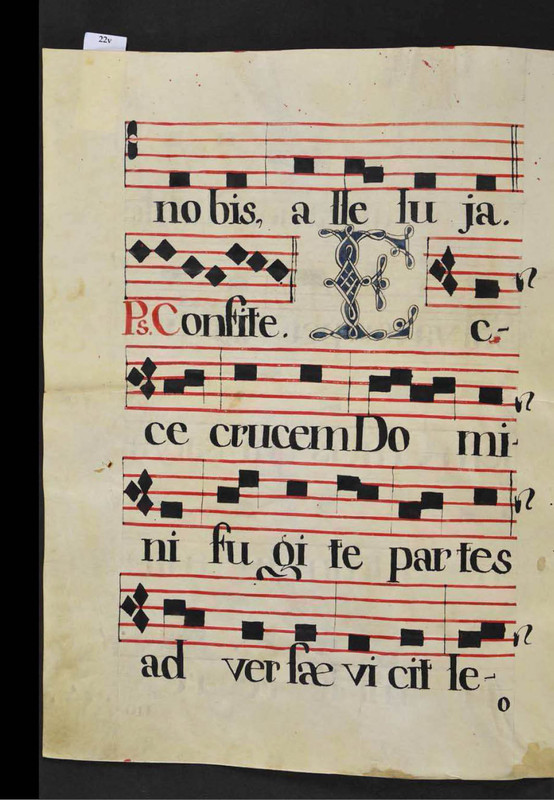 22v
no bis, a lle lu ja.
Ps. Confite. E c-
ce crucem Do mi-
ni fu gi te partes
ad ver sæ vi cit le-
o